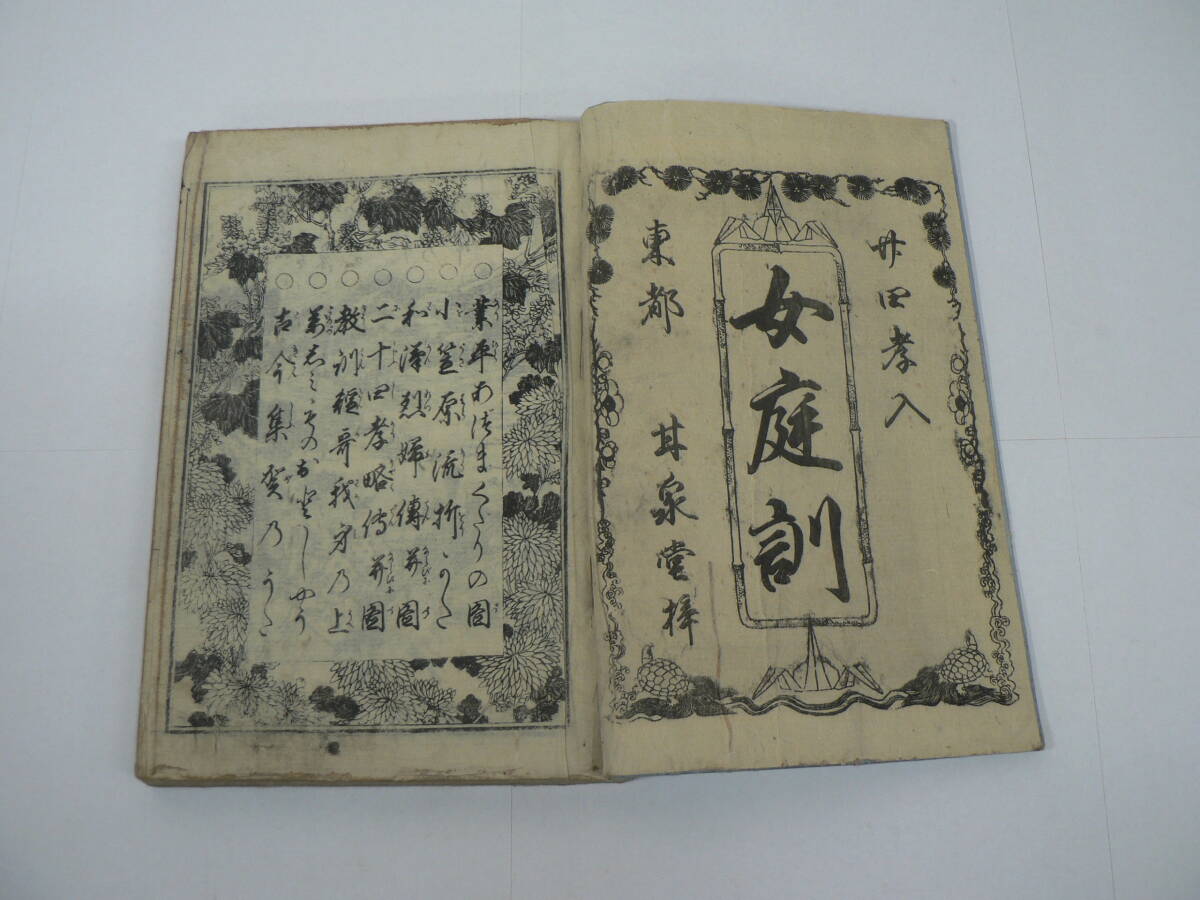 廿四孝入
女庭訓
東都 甘泉堂梓
○業平あづまくだりの圖
○小笠原流折かた
○和漢烈婦傳并圖
○二十四孝略傳并圖
○教訓躾哥我身乃上
○古今集賀乃うた